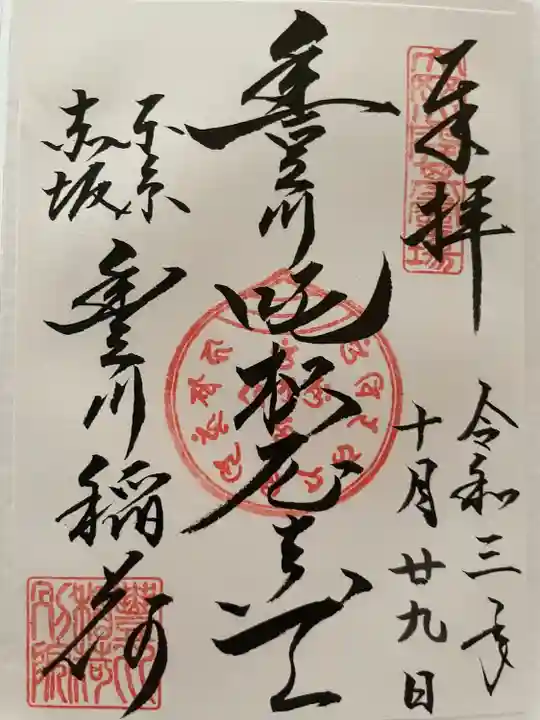 奉拝
令和三年
十月廿九日
豊川吒枳尼真天
東京
赤坂
豊川稲荷
豊川
稲荷
別院